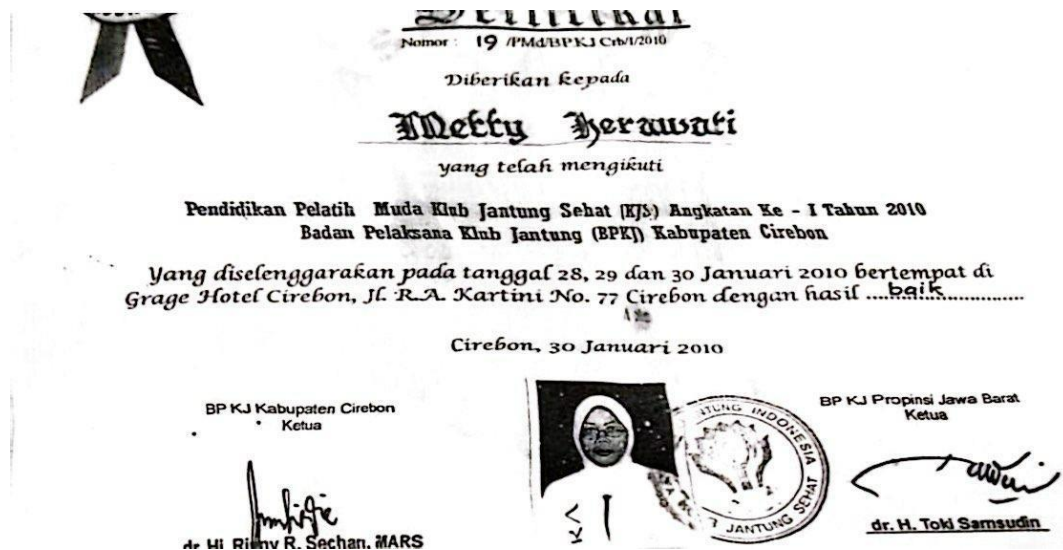 Sertifikat
Nomor : 19 /PMd/BPKJ Crb/I/2010
Diberikan kepada
Metty Herawati
yang telah mengikuti
Pendidikan Pelatih Muda Klub Jantung Sehat (KJS) Angkatan Ke - I Tahun 2010
Badan Pelaksana Klub Jantung (BPKJ) Kabupaten Cirebon
Yang diselenggarakan pada tanggal 28, 29 dan 30 Januari 2010 bertempat di
Grage Hotel Cirebon, Jl. R.A. Kartini No. 77 Cirebon dengan hasil ....baik..............
Cirebon, 30 Januari 2010
BP KJ Kabupaten Cirebon
Ketua
BP KJ Propinsi Jawa Barat
Ketua
JANTUNG INDONESIA
JANTUNG SEHAT
dr. Hj. R. Sechan, MARS
dr. H. Toki Samsudin